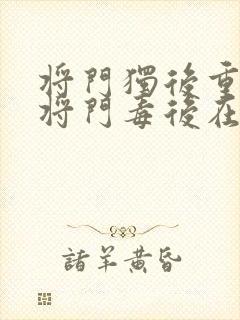 將門獨後重
將門毒後在
諸羊黃昏